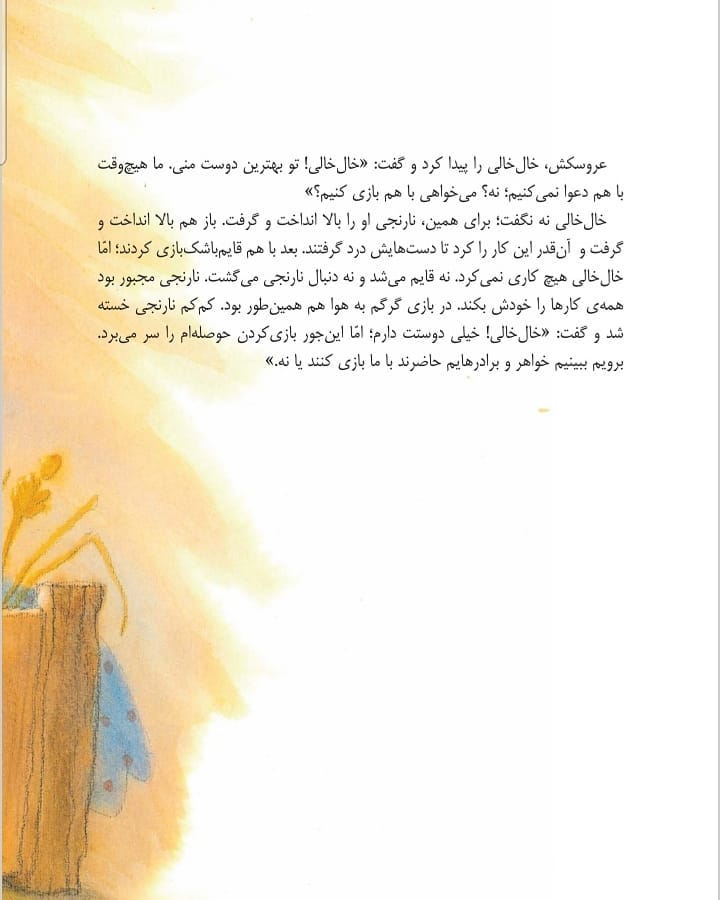 عروسکش، خال‌خالی را پیدا کرد و گفت: «خال‌خالی! تو بهترین دوست منی. ما هیچ‌وقت
با هم دعوا نمی‌کنیم؛ نه؟ می‌خواهی با هم بازی کنیم؟»
خال‌خالی نه نگفت؛ برای همین، نارنجی او را بالا انداخت و گرفت. باز هم بالا انداخت و
گرفت و آن‌قدر این کار را کرد تا دست‌هایش درد گرفتند. بعد با هم قایم‌باشک‌بازی کردند؛ امّا
خال‌خالی هیچ کاری نمی‌کرد. نه قایم می‌شد و نه دنبال نارنجی می‌گشت. نارنجی مجبور بود
همه‌ی کارها را خودش بکند. در بازی گرگم به هوا هم همین‌طور بود. کم‌کم نارنجی خسته
شد و گفت: «خال‌خالی! خیلی دوستت دارم؛ امّا این‌جور بازی‌کردن حوصله‌ام را سر می‌برد.
برویم ببینیم خواهر و برادرهایم حاضرند با ما بازی کنند یا نه.»